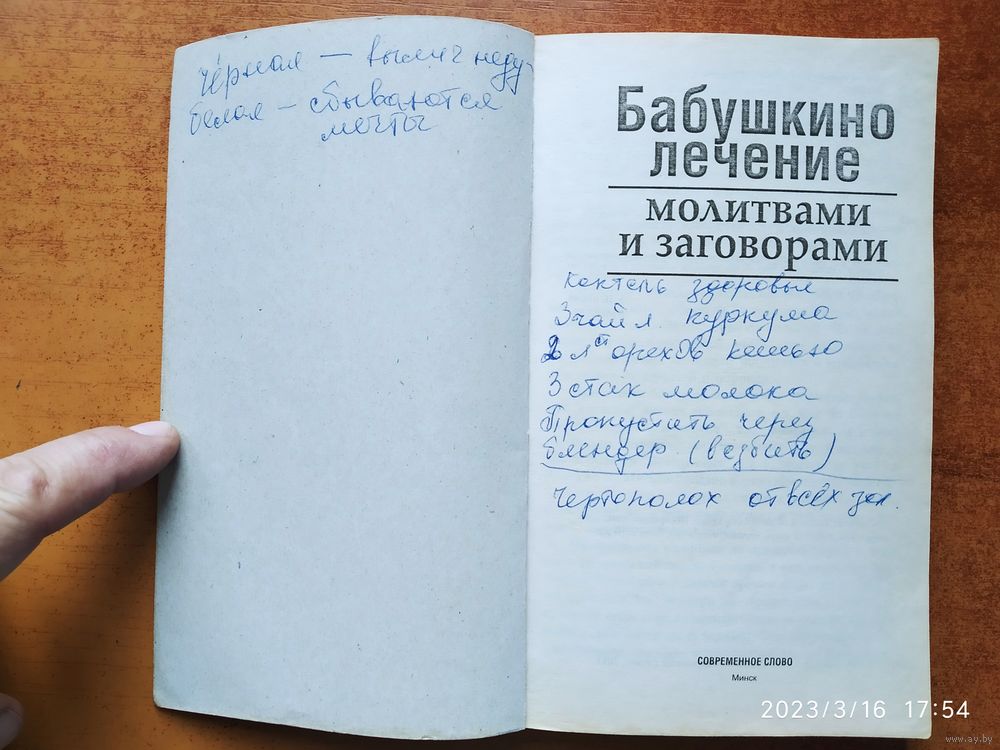 Чёрная — вылеч неду-
белая — сбываются
мечты
Бабушкино
лечение
молитвами
и заговорами
Коктель здоровья
3 чай л. куркума
2 л ст орехов кешью
3 стак молока
Пропустить через
блендер (взбить)
Чертополох от всех
СОВРЕМЕННОЕ СЛОВО
Минск
2023/3/16 17:54
www.ay.by